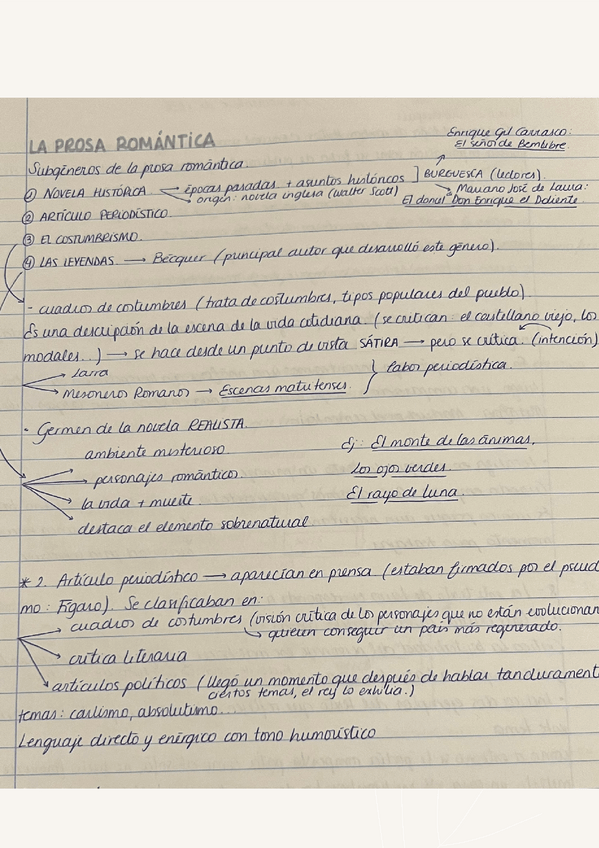 LA PROSA ROMÁNTICA
Enrique Gil Carrasco:
El señor de Bembibre
Subgéneros de la prosa romántica.
① NOVELA HISTÓRICA épocas pasadas + asuntos históricos ] BURGUESÍA (lectores).
origen: novela inglesa (Walter Scott) Mariano José de Larra:
② ARTÍCULO PERIODÍSTICO. El doncel Don Enrique el Doliente
③ EL COSTUMBRISMO.
④ LAS LEYENDAS. → Bécquer (principal autor que desarrolló este género).
- cuadros de costumbres (trata de costumbres, tipos populares del pueblo).
Es una descripción de la escena de la vida cotidiana. (se critican: el castellano viejo, los
modales...) → se hace desde un punto de vista SÁTIRA → pero se critica. (intención)
Larra
Mesoneros Romanos → Escenas matutenses. } labor periodística.
- Germen de la novela REALISTA.
ambiente misterioso. Ej: El monte de las ánimas.
personajes románticos. Los ojos verdes.
la vida + muerte El rayo de luna.
destaca el elemento sobrenatural
* 2. Artículo periodístico → aparecían en prensa (estaban firmados por el pseud
mo: Fígaro). Se clasificaban en:
cuadros de costumbres (visión crítica de los personajes que no están evolucionan
↳ quieren conseguir un país más regenerado.
crítica literaria
artículos políticos (llegó un momento que después de hablar tan durament
ciertos temas, el rey lo exilia.)
temas: carlismo, absolutismo...
Lenguaje directo y enérgico con tono humorístico